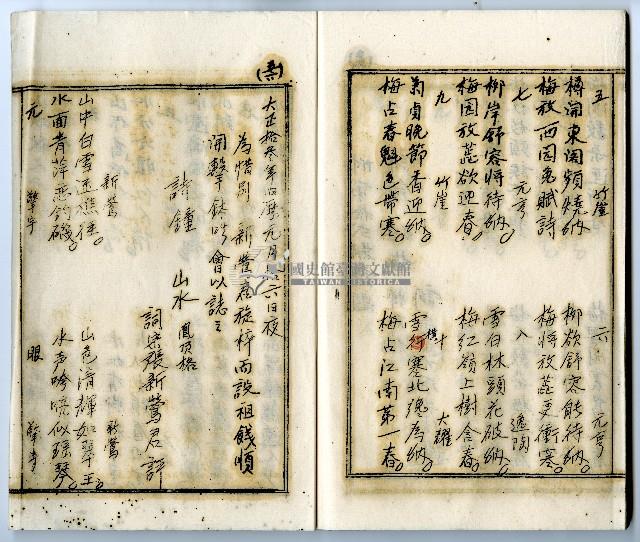 五 竹崖
樽開東閣頻燒納。
梅放西園兎賦詩
七 元亨
柳岸舒容將待納。
梅園放蕊欲迎春。
九 竹崖
菊貞晚節香迎納。
梅占春魁色帶寒。
六 元亨
柳欲舒容能待納。
梅將放蕊更衝寒。
八 逸陶
雪白林頭花破納。
梅紅嶺上樹含春。
十 大耀
雪橫塞北魂為納。
梅占江南第一春。
大正拾叁年旧曆元月二六日夜
為惜別 新鶯 旋梓而設祖餞順
開擊鉢吟會以誌之
詩鐘
山水 鳳頂格
詞宗張新鶯君評
新鶯
山中白雪迷樵徑。
水面青萍惡釣磯。
元
眼
新鶯
山色清輝如翠玉。
水声吟嘵似瑤琴。
國史館臺灣文獻館
TAIWAN HISTORICA